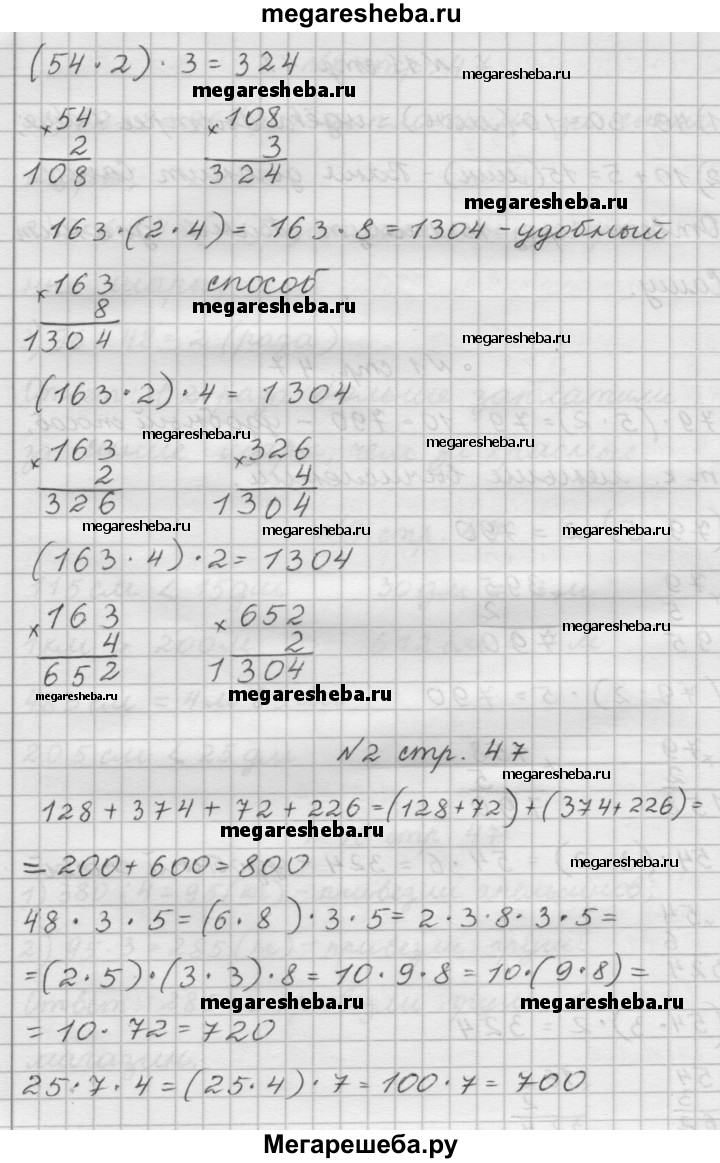 megaresheba.ru
(54·2)·3=324
megaresheba.ru
megaresheba.ru
×54 ×108
2 3
108 324
megaresheba.ru
163·(2·4)= 163·8=1304-удобный
×163 способ
8 megaresheba.ru
1304
megaresheba.ru
(163·2)·4=1304
megaresheba.ru
megaresheba.ru
×163 ×326
2 4
326 1304
megaresheba.ru megaresheba.ru megaresheba.ru
(163·4)·2=1304
×163 ×652
megaresheba.ru
4 2
652 1304
megaresheba.ru megaresheba.ru
№2 стр. 47
megaresheba.ru
128+374+72+226=(128+72)+(374+226)=
megaresheba.ru
=200+600=800
megaresheba.ru
48·3·5=(6·8)·3·5=2·3·8·3·5=
=(2·5)·(3·3)·8=10·9·8=10·(9·8)=
megaresheba.ru megaresheba.ru
=10·72=720
25·7·4=(25·4)·7=100·7=700
Мегарешеба.ру